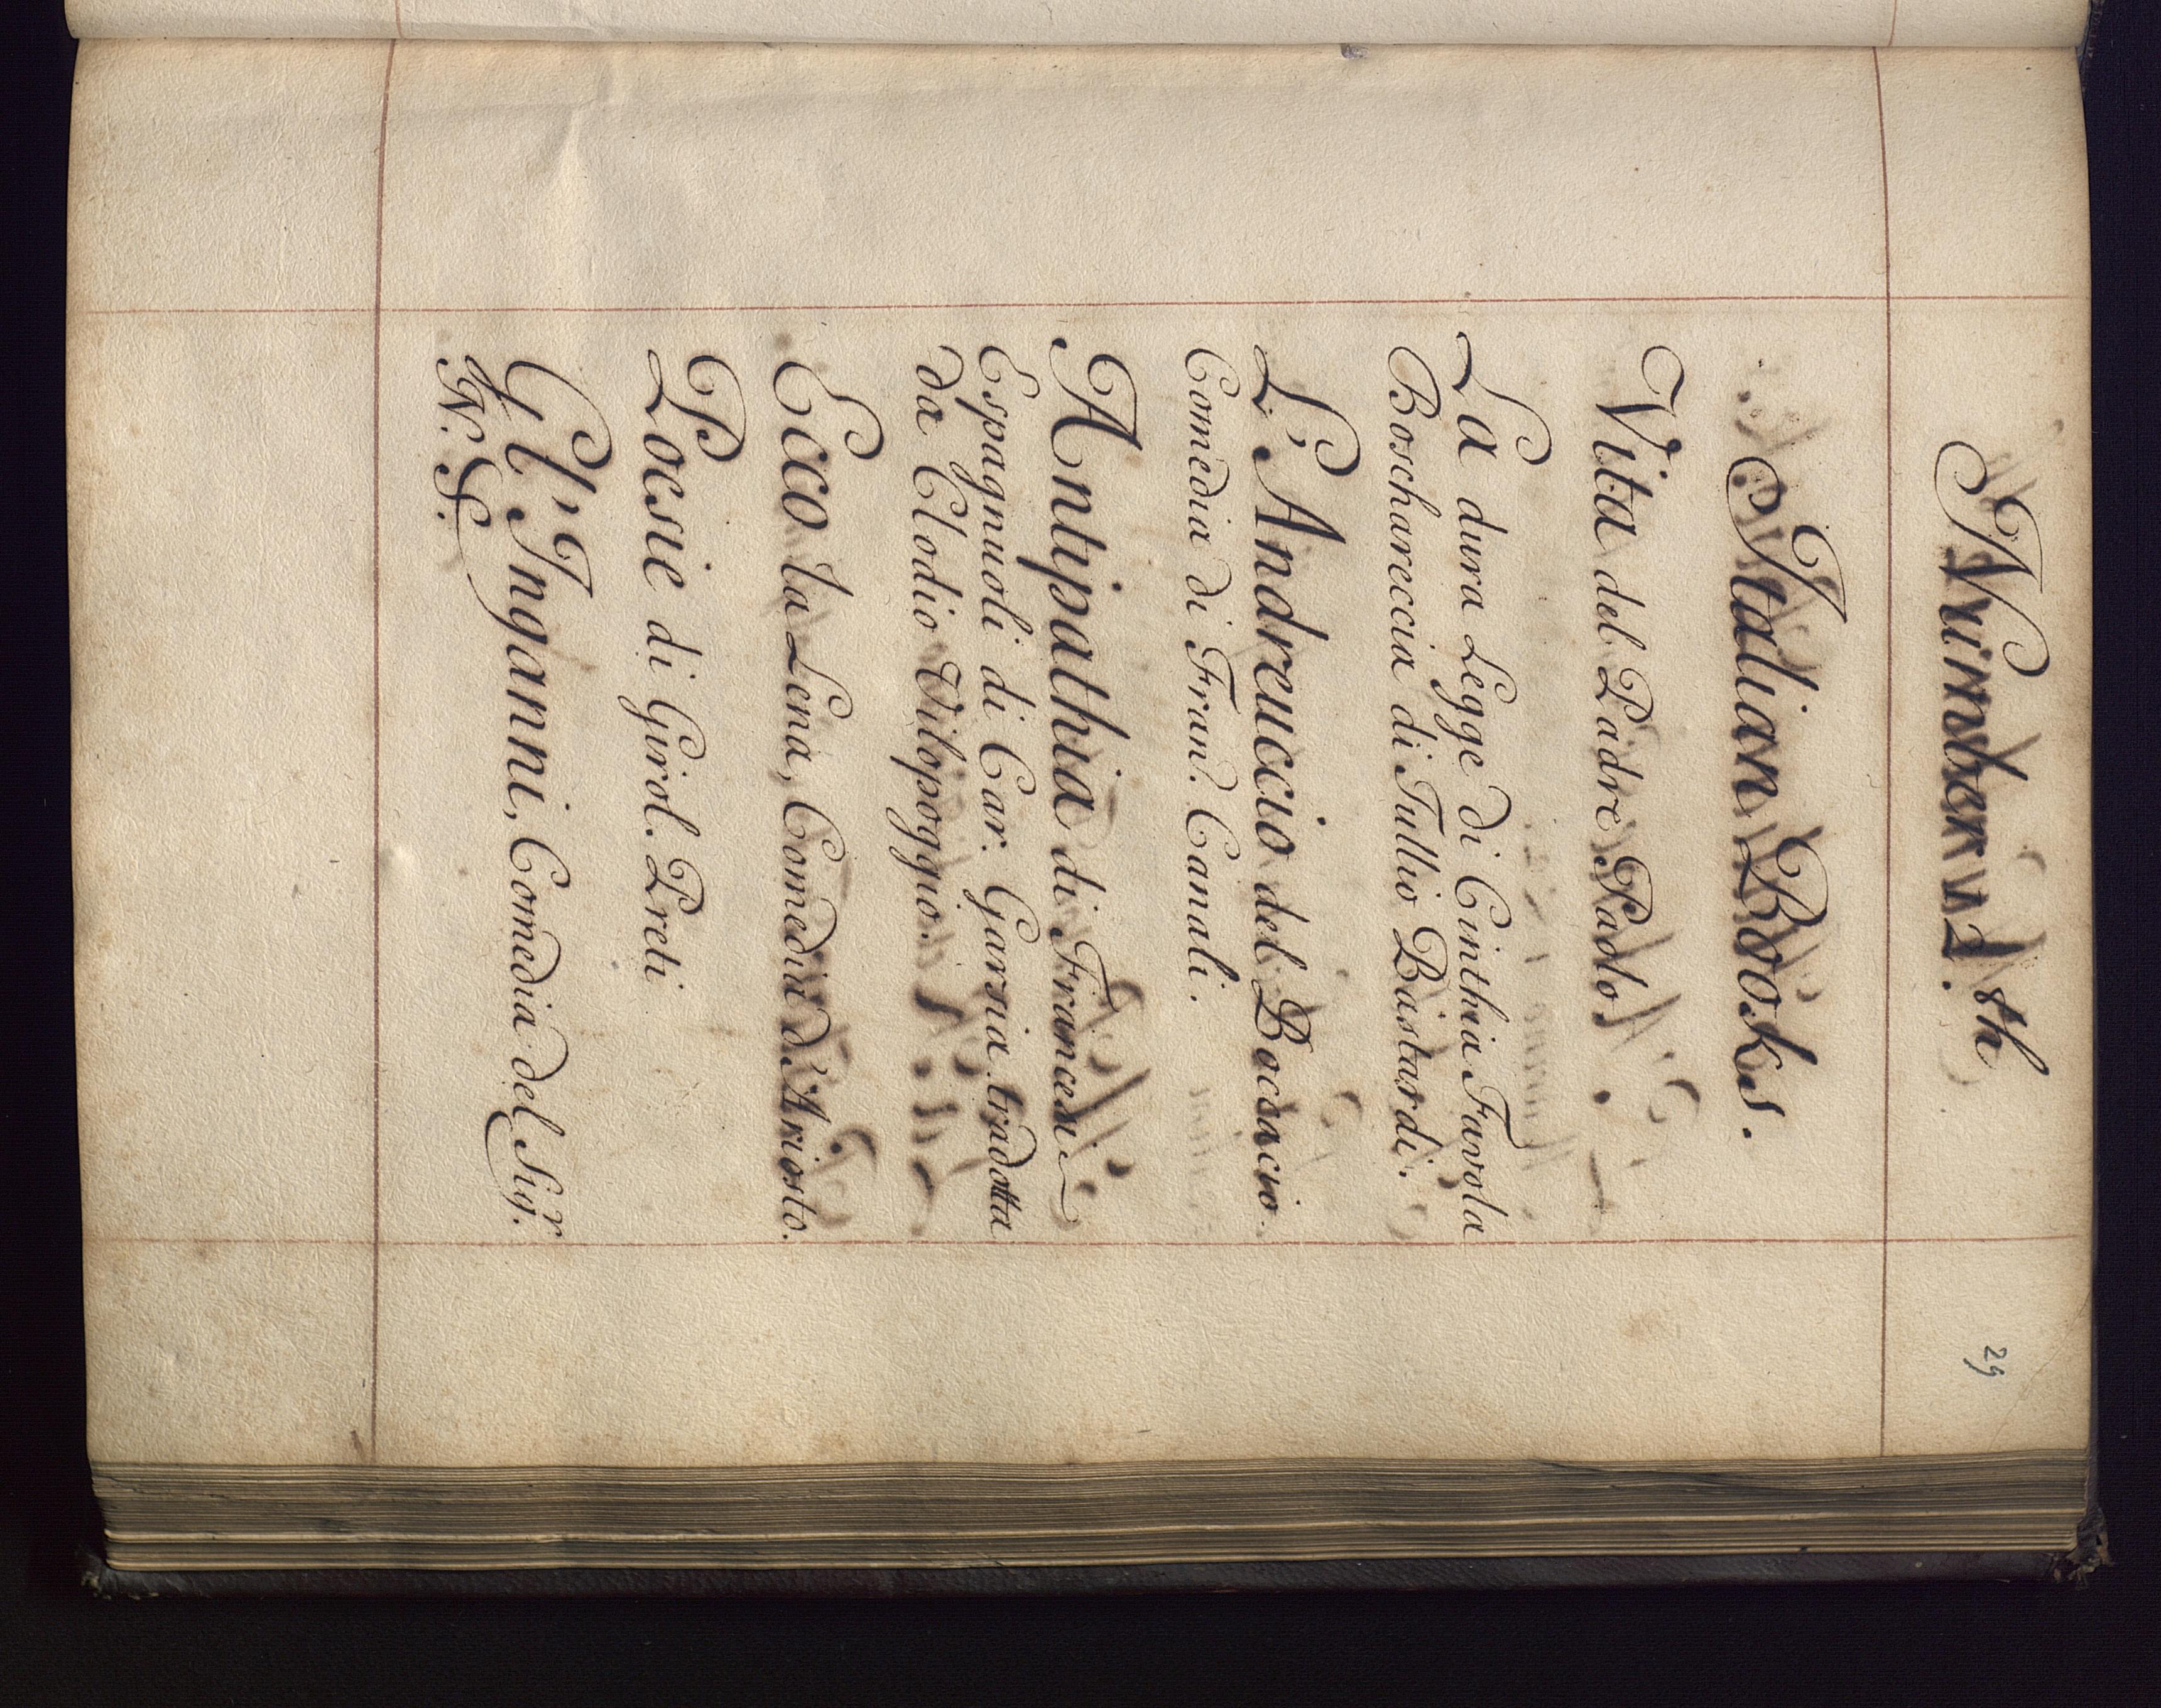 29
Number 1.th
Italian Books.
Vita del Padre Paolo.
La dura Legge di Cinthia Favola
Boschareccia di Tullio Bastardi.
L'Andreuccio del Bocsacio.
Comedia di Fran.º Canali.
Antipathia di Francesi
Espagnuoli di Car: Garsia tradotta
da Clodio Vilopoggio.
Ecco la Lena, Comedia d'Ariosto.
Poesie di Girol. Preti
Gl'Inganni, Comedia del Sig.r
N. S.